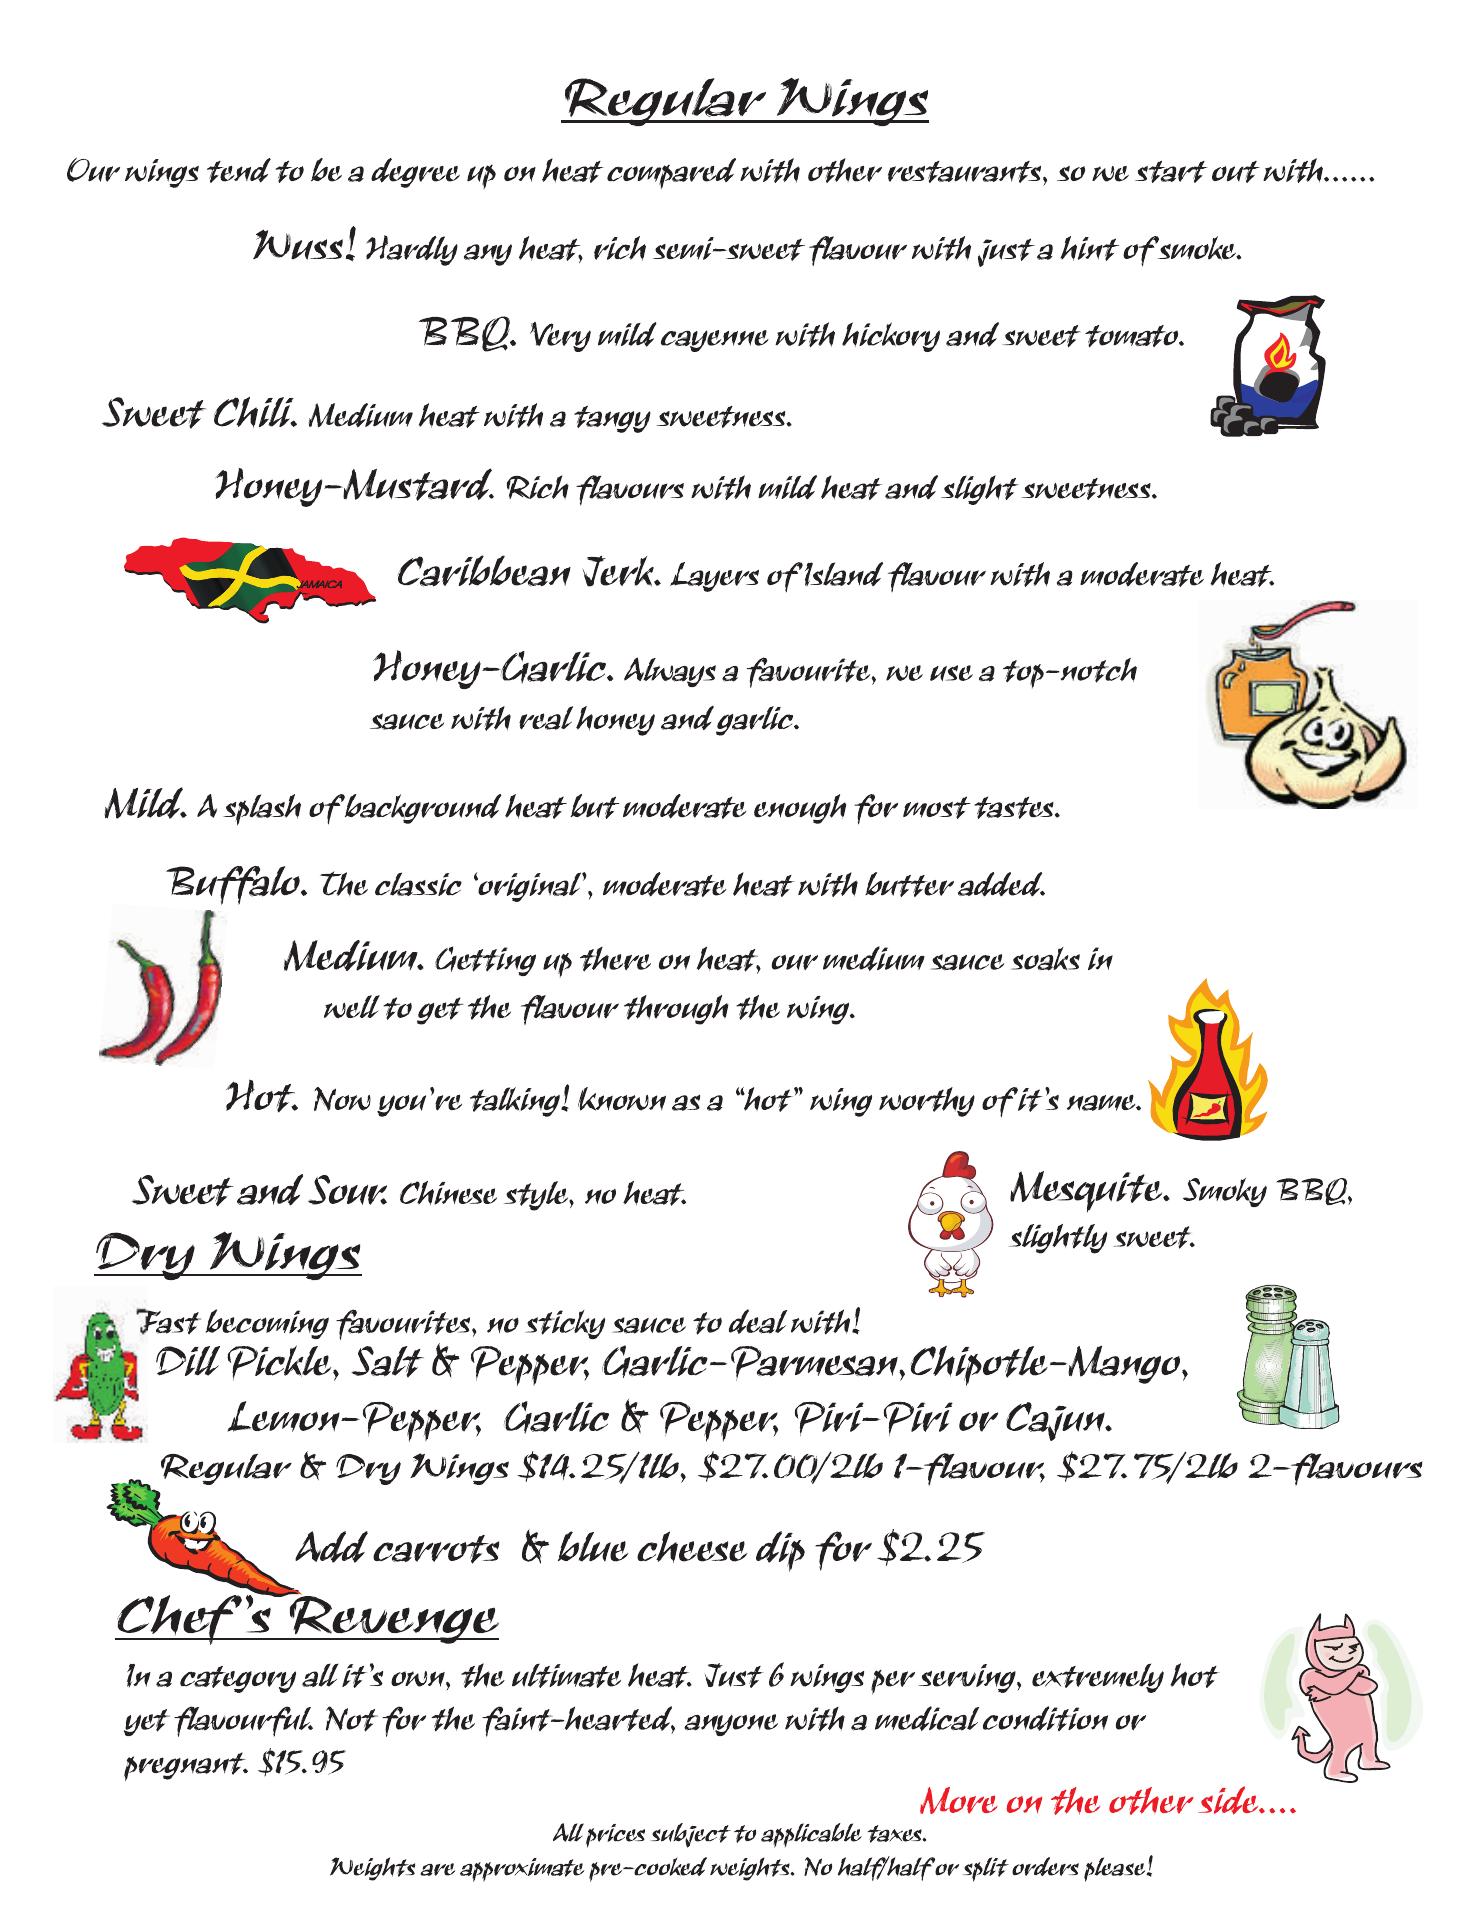 Regular Wings
Our wings tend to be a degree up on heat compared with other restaurants, so we start out with......
Wuss! Hardly any heat, rich semi-sweet flavour with just a hint of smoke.
BBQ. Very mild cayenne with hickory and sweet tomato.
Sweet Chili. Medium heat with a tangy sweetness.
Honey-Mustard. Rich flavours with mild heat and slight sweetness.
JAMAICA
Caribbean Jerk. Layers of Island flavour with a moderate heat.
Honey-Garlic. Always a favourite, we use a top-notch
sauce with real honey and garlic.
Mild. A splash of background heat but moderate enough for most tastes.
Buffalo. The classic ‘original’, moderate heat with butter added.
Medium. Getting up there on heat, our medium sauce soaks in
well to get the flavour through the wing.
Hot. Now you’re talking! Known as a “hot” wing worthy of it’s name.
Sweet and Sour. Chinese style, no heat.
Mesquite. Smoky BBQ,
slightly sweet.
Dry Wings
Fast becoming favourites, no sticky sauce to deal with!
Dill Pickle, Salt & Pepper, Garlic-Parmesan,Chipotle-Mango,
Lemon-Pepper, Garlic & Pepper, Piri-Piri or Cajun.
Regular & Dry Wings $14.25/1lb, $27.00/2lb 1-flavour, $27.75/2lb 2-flavours
Add carrots & blue cheese dip for $2.25
Chef’s Revenge
In a category all it’s own, the ultimate heat. Just 6 wings per serving, extremely hot
yet flavourful. Not for the faint-hearted, anyone with a medical condition or
pregnant. $15.95
More on the other side....
All prices subject to applicable taxes.
Weights are approximate pre-cooked weights. No half/half or split orders please!